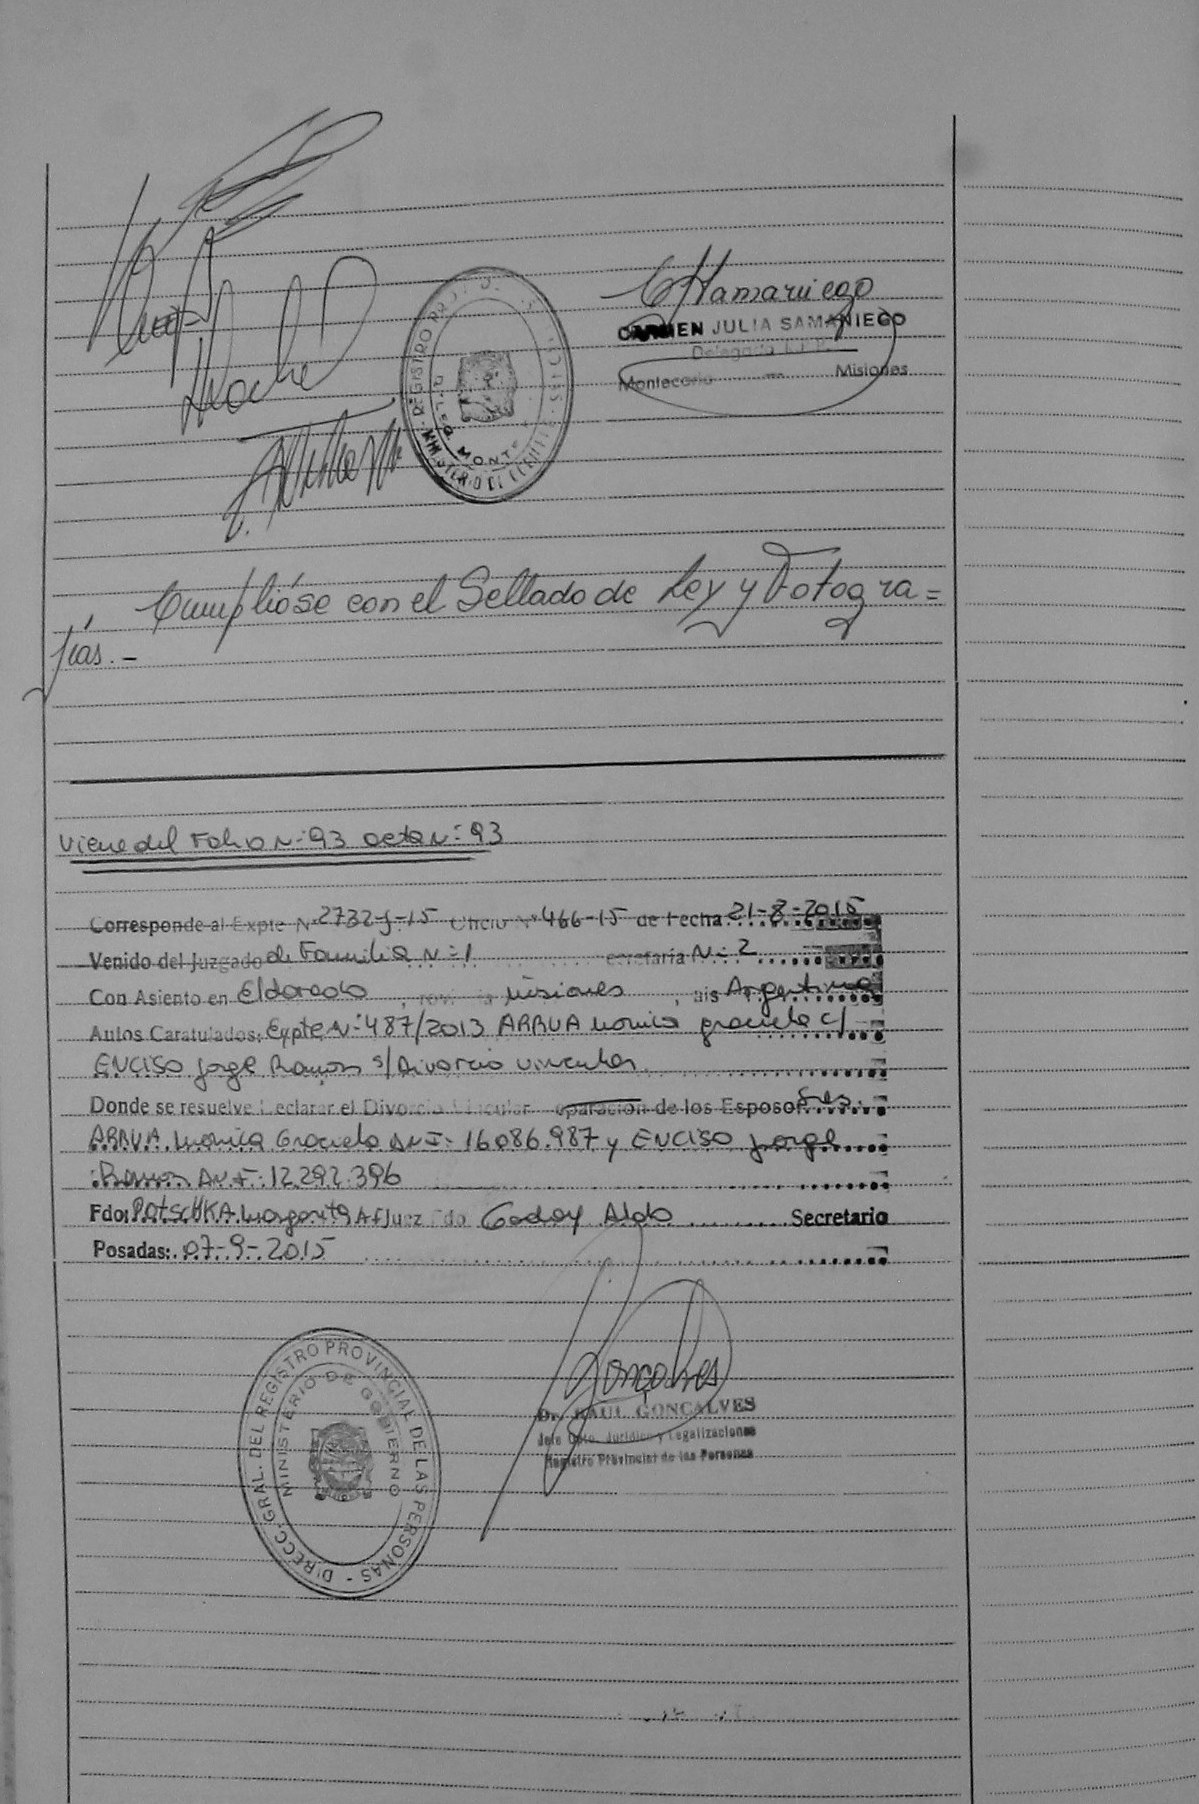 CARMEN JULIA SAMANIEGO
Delegada
Misiones
Cumplióse con el Sellado de Ley y Fotogra=
fías.-
Viene del Folio N: 93 acta N: 93
Corresponde al Expte N° 2732-J-15 Oficio N° 466-15 de Fecha 21-8-2015
Venido del Juzgado de Familia N: 1 ecretaría N: 2
Con Asiento en Eldorado, rov. Misiones, aís Argentina
Autos Caratulados: Expte N: 487/2013 ARRUA Monica graciela c/
ENCISO Jorge Ramon s/Divorcio vincular
Donde se resuelve Declarar el Divorcio Vincular eparación de los Esposos Sres.
ARRUA Monica Graciela DNI: 16086.987 y ENCISO Jorge
Ramon DNI: 12.292.396
Fdo: POTSCHKA Margarita A F Juez Fdo Godoy Aldo Secretario
Posadas: 07-9-2015
DIRECC. GRAL. DEL REGISTRO PROVINCIAL DE LAS PERSONAS -
MINISTERIO DE GOBIERNO
Goncalves
Dr. RAUL GONÇALVES
Jefe Dpto. Jurídico y Legalizaciones
Registro Provincial de las Personas